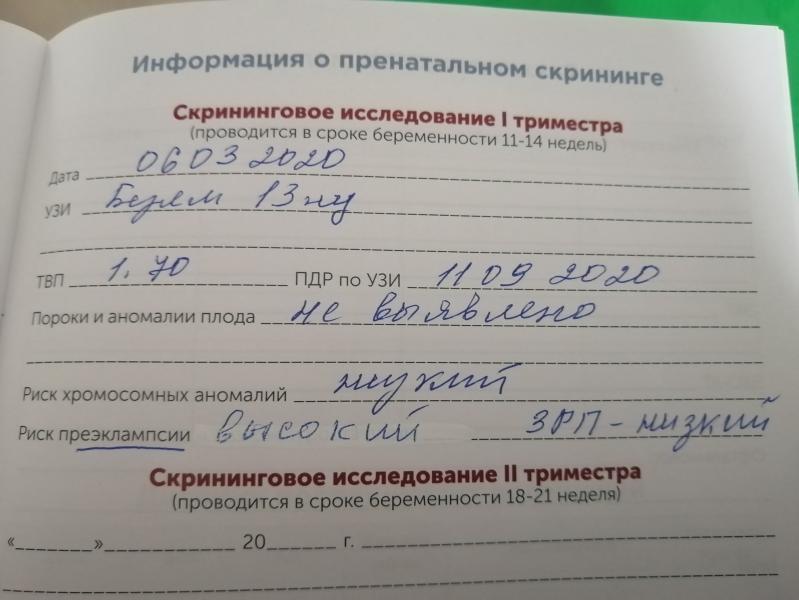 Информация о пренатальном скрининге
Скрининговое исследование I триместра
(проводится в сроке беременности 11-14 недель)
Дата 06 03 2020
УЗИ Берем 13 нед
ТВП 1.70 ПДР по УЗИ 11 09 2020
Пороки и аномалии плода не выявлено
Риск хромосомных аномалий низкий
Риск преэклампсии высокий ЗРП - низкий
Скрининговое исследование II триместра
(проводится в сроке беременности 18-21 неделя)
« » 20 г.